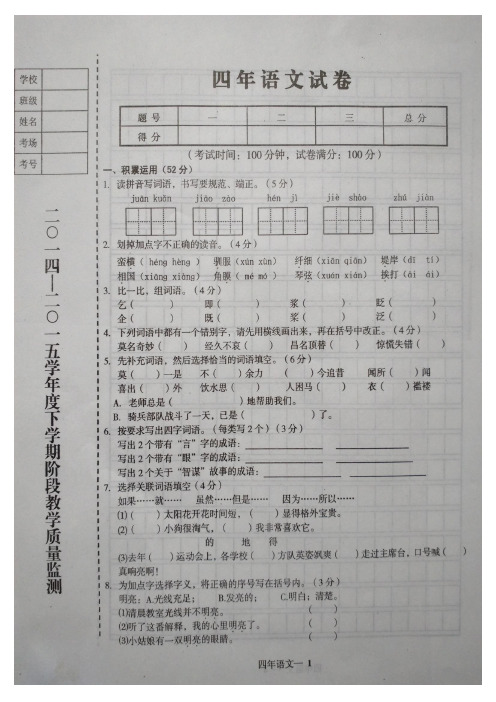 学校
班级
姓名
考场
考号
二〇一四—二〇一五学年度下学期阶段教学质量监测
四年语文试卷
题号 一 二 三 总分
得分
(考试时间：100分钟，试卷满分：100分)
一、积累运用(52分)
1. 读拼音写词语，书写要规范、端正。(5分)
juān kuǎn jiāo zào hén jì jiè shào zhú jiàn
2. 划掉加点字不正确的读音。(4分)
蛮横(héng hèng) 驯服(xùn xún) 纤细(xiān qiān) 堤岸(dī tí)
相国(xiāng xiàng) 角膜(mé mó) 琴弦(xuán xián) 挨打(āi ái)
3. 比一比，组词语。(4分)
乞( ) 即( ) 浆( ) 贬( )
企( ) 既( ) 桨( ) 泛( )
4. 下列词语中都有一个错别字，请先用横线画出来，再在括号中改正。(4分)
莫名奇妙( ) 经久不哀( ) 昌名顶替( ) 惊慌失错( )
5. 先补充词语，然后选择恰当的词语填空。(6分)
莫( )一是 不( )余力 ( )今追昔 闻所( )闻
喜出( )外 饮水思( ) 人困马( ) 衣( )褴褛
A. 老师总是( )地帮助我们。
B. 骑兵部队战斗了一天，已是( )了。
6. 按要求写出四字词语。(每类写2个)(3分)
写出2个带有“言”字的成语：
写出2个带有“眼”字的成语：
写出2个关于“智谋”故事的成语：
7. 选择关联词语填空(4分)
如果……就…… 虽然……但是…… 因为……所以……
(1)( )太阳花开花时间短，( )显得格外宝贵。
(2)( )小狗很淘气，( )我非常喜欢它。
的 地 得
(3)去年( )运动会上，各学校( )方队英姿飒爽( )走过主席台，口号喊( )
真响亮啊！
8. 为加点字选择字义，将正确的序号写在括号内。(3分)
明亮：A.光线充足； B.发亮的； C.明白；清楚。
(1)清晨教室光线并不明亮。 ( )
(2)听了这番解释，我的心里明亮了。 ( )
(3)小姑娘有一双明亮的眼睛。 ( )
四年语文— 1